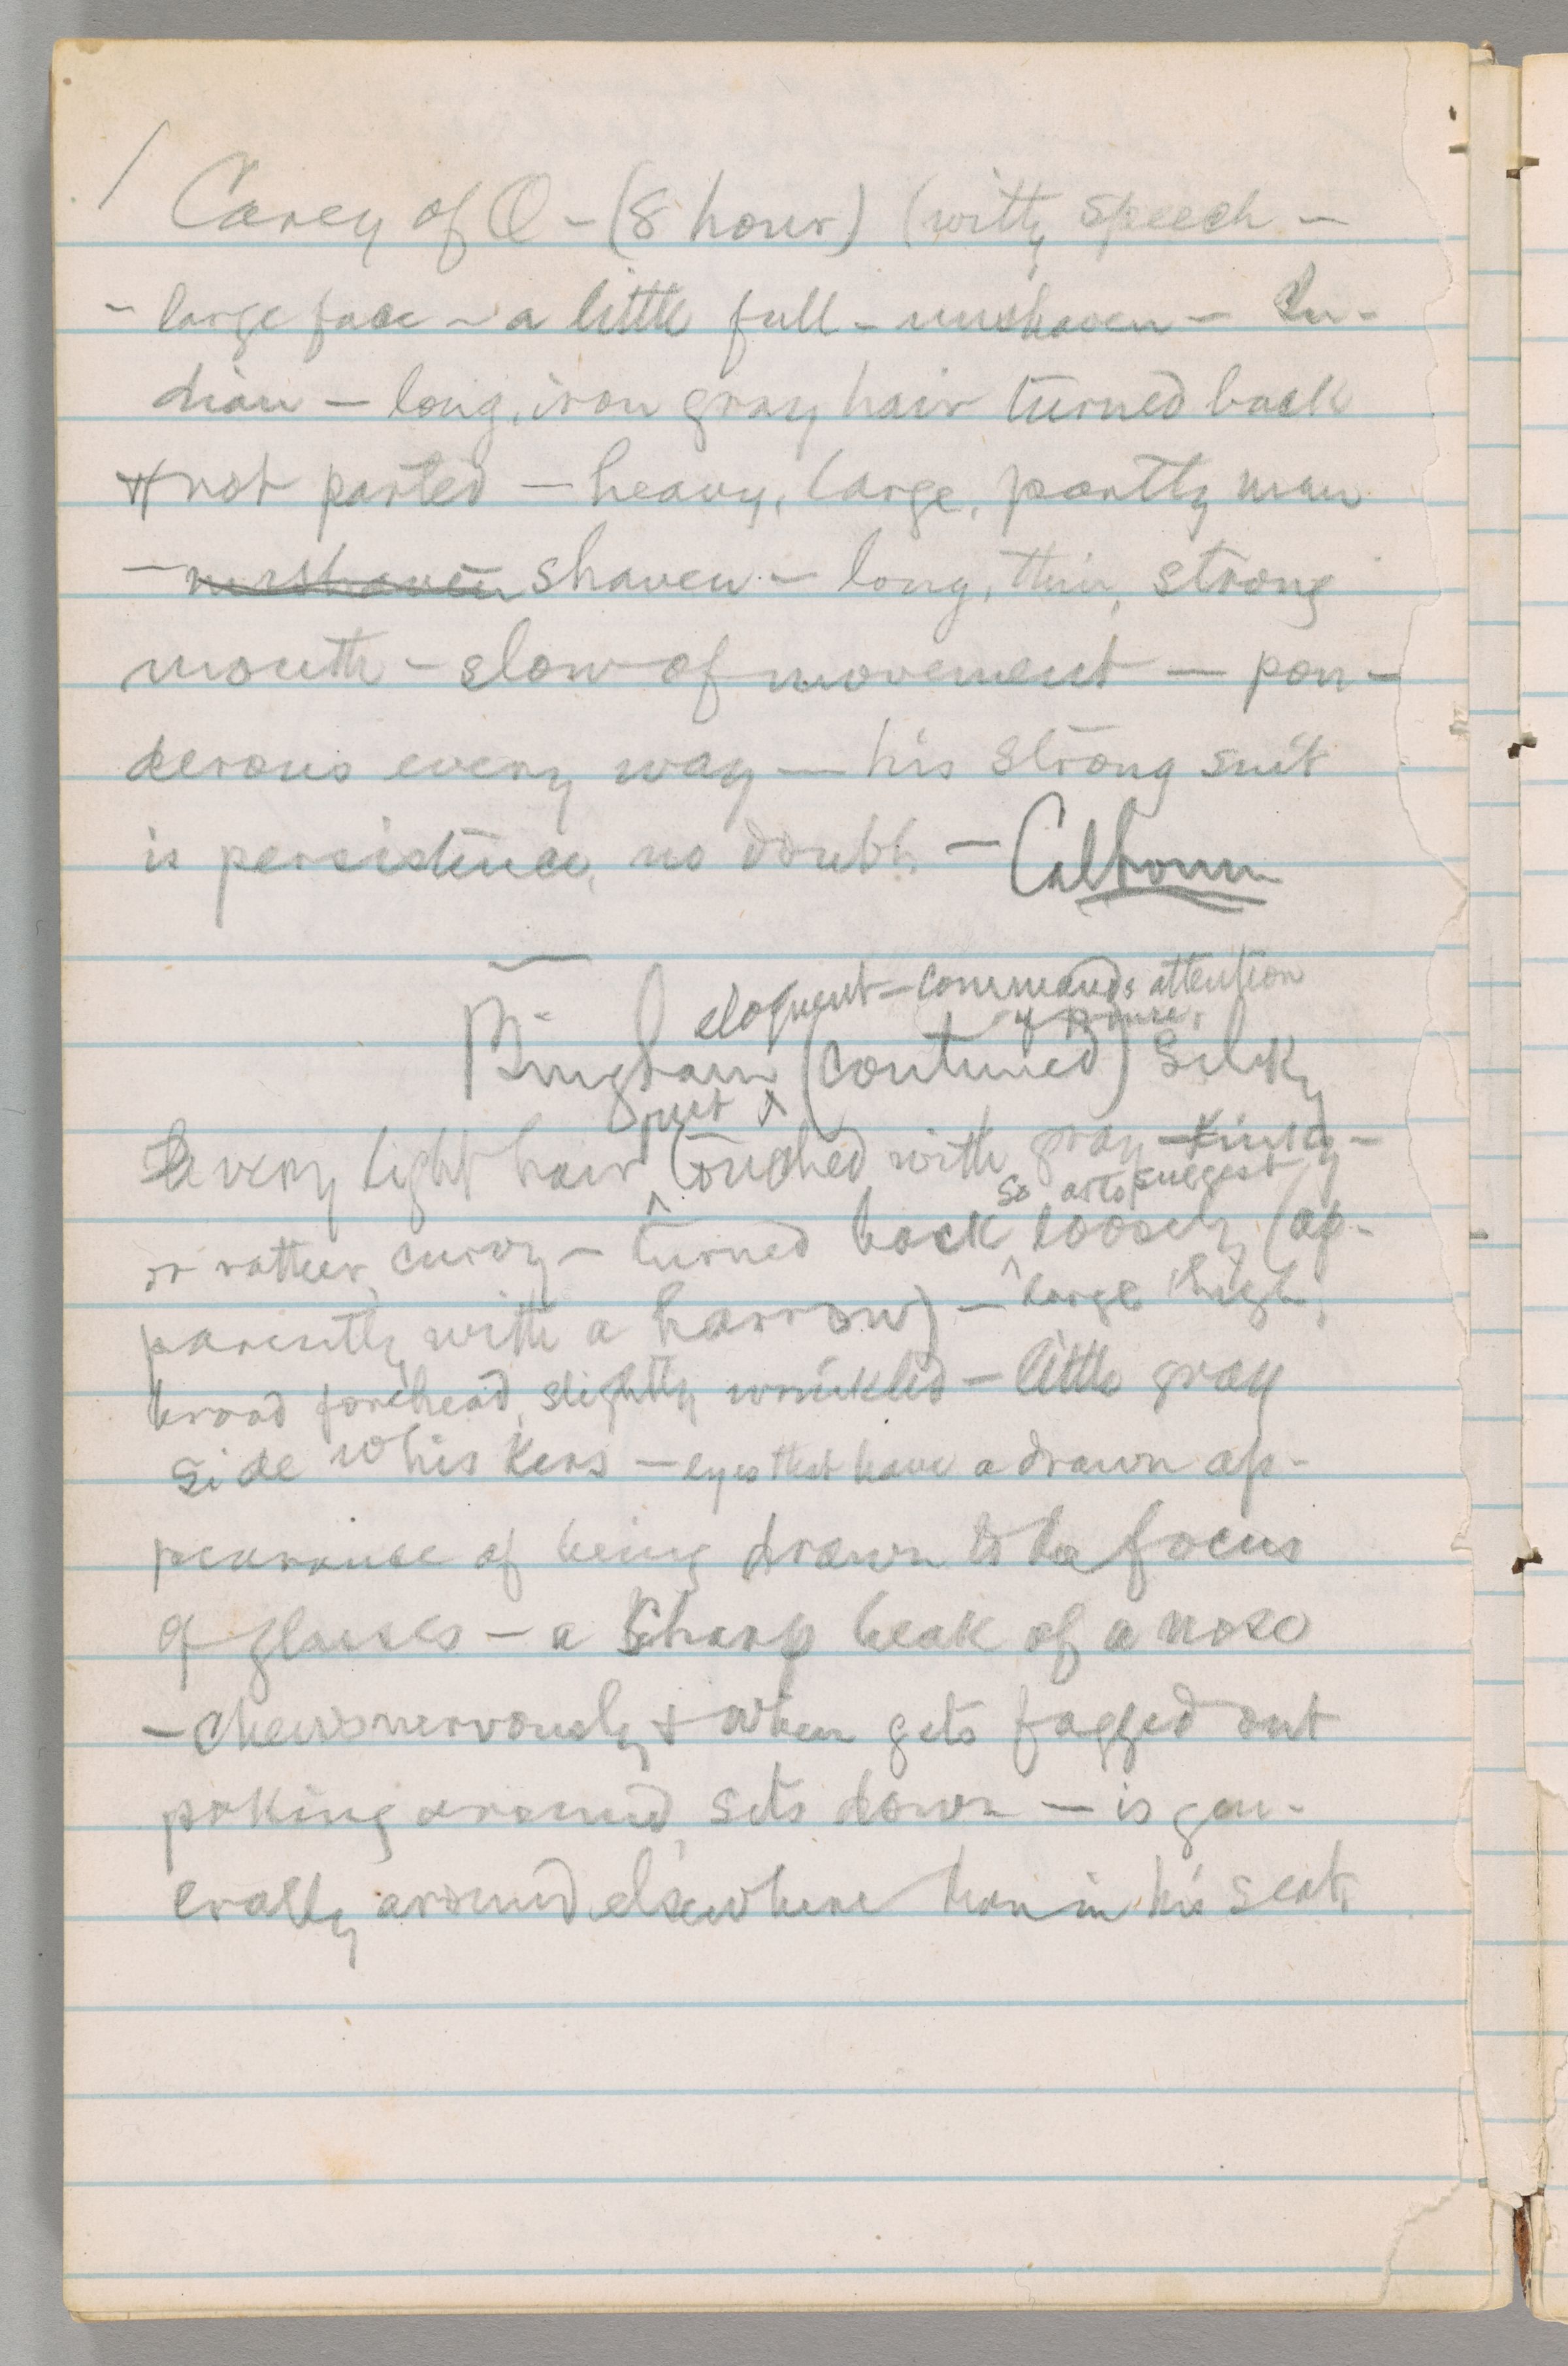 / Carey of O – (8 hour) (witty speech –
– large face – a little full – unshaven – In-
dian – long, iron gray hair turned back
& not parted – heavy, large, portly man
– unshaven shaven – long, thin, strong
mouth – slow of movement – pon-
derous every way – his strong suit
is persistence, no doubt. – Calhoun
eloquent – commands attention
of House.
Bingham (continued) Silky
just
very light hair touched with gray – kinky –
so as to suggest
or rather, curvy – turned back loosely (ap-
parently with a harrow) – large, high,
broad forehead, slightly wrinkled – little gray
side whiskers – eyes that have a drawn ap-
pearance of being drawn to a focus
of glasses – a sharp beak of a nose
– chews nervously & when gets fagged out
poking around, sets down – is gen-
erally around elsewhere than in his seat.